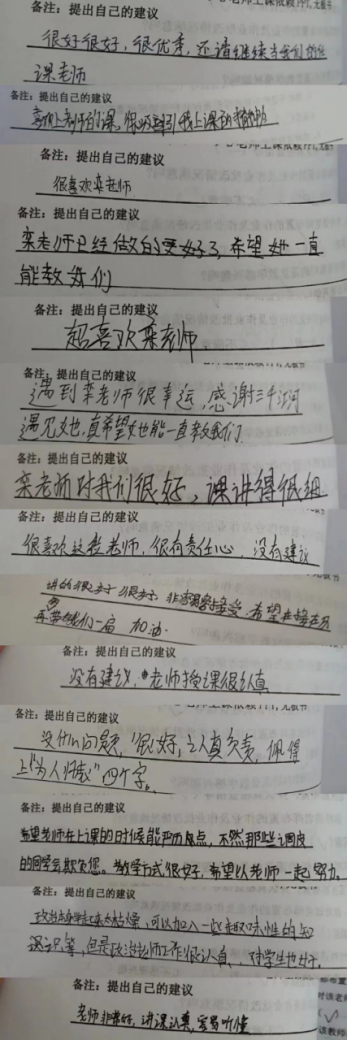 备注：提出自己的建议
很好很好，很优秀，还请继续当我们的
课老师
备注：提出自己的建议
备注：提出自己的建议
很喜欢栾老师
备注：提出自己的建议
栾老师已经做的更好了，希望她一直
能教我们
备注：提出自己的建议
超喜欢栾老师
备注：提出自己的建议
遇到栾老师很幸运，感谢三千
遇见她，真希望她能一直教我们
备注：提出自己的建议
栾老师对我们很好，课讲得很细
备注：提出自己的建议
很喜欢这教老师，很有责任心，没有建议
讲的很好 很好，非常容易接受，希望
再带我们一届 加油
备注：提出自己的建议
没有建议，老师授课很认真
备注：提出自己的建议
没什么问题，很好，认真负责，佩得
上“为人师表”四个字。
备注：提出自己的建议
希望老师在上课的时候能严厉点，不然那些调皮
的同学会欺负您。教学方式很好，希望以老师一起努力。
备注：提出自己的建议
政治太枯燥，可以加入一些趣味性的知
识等，但是政治老师工作很认真，对学生也好。
备注：提出自己的建议
老师非常好，讲课认真，容易听懂